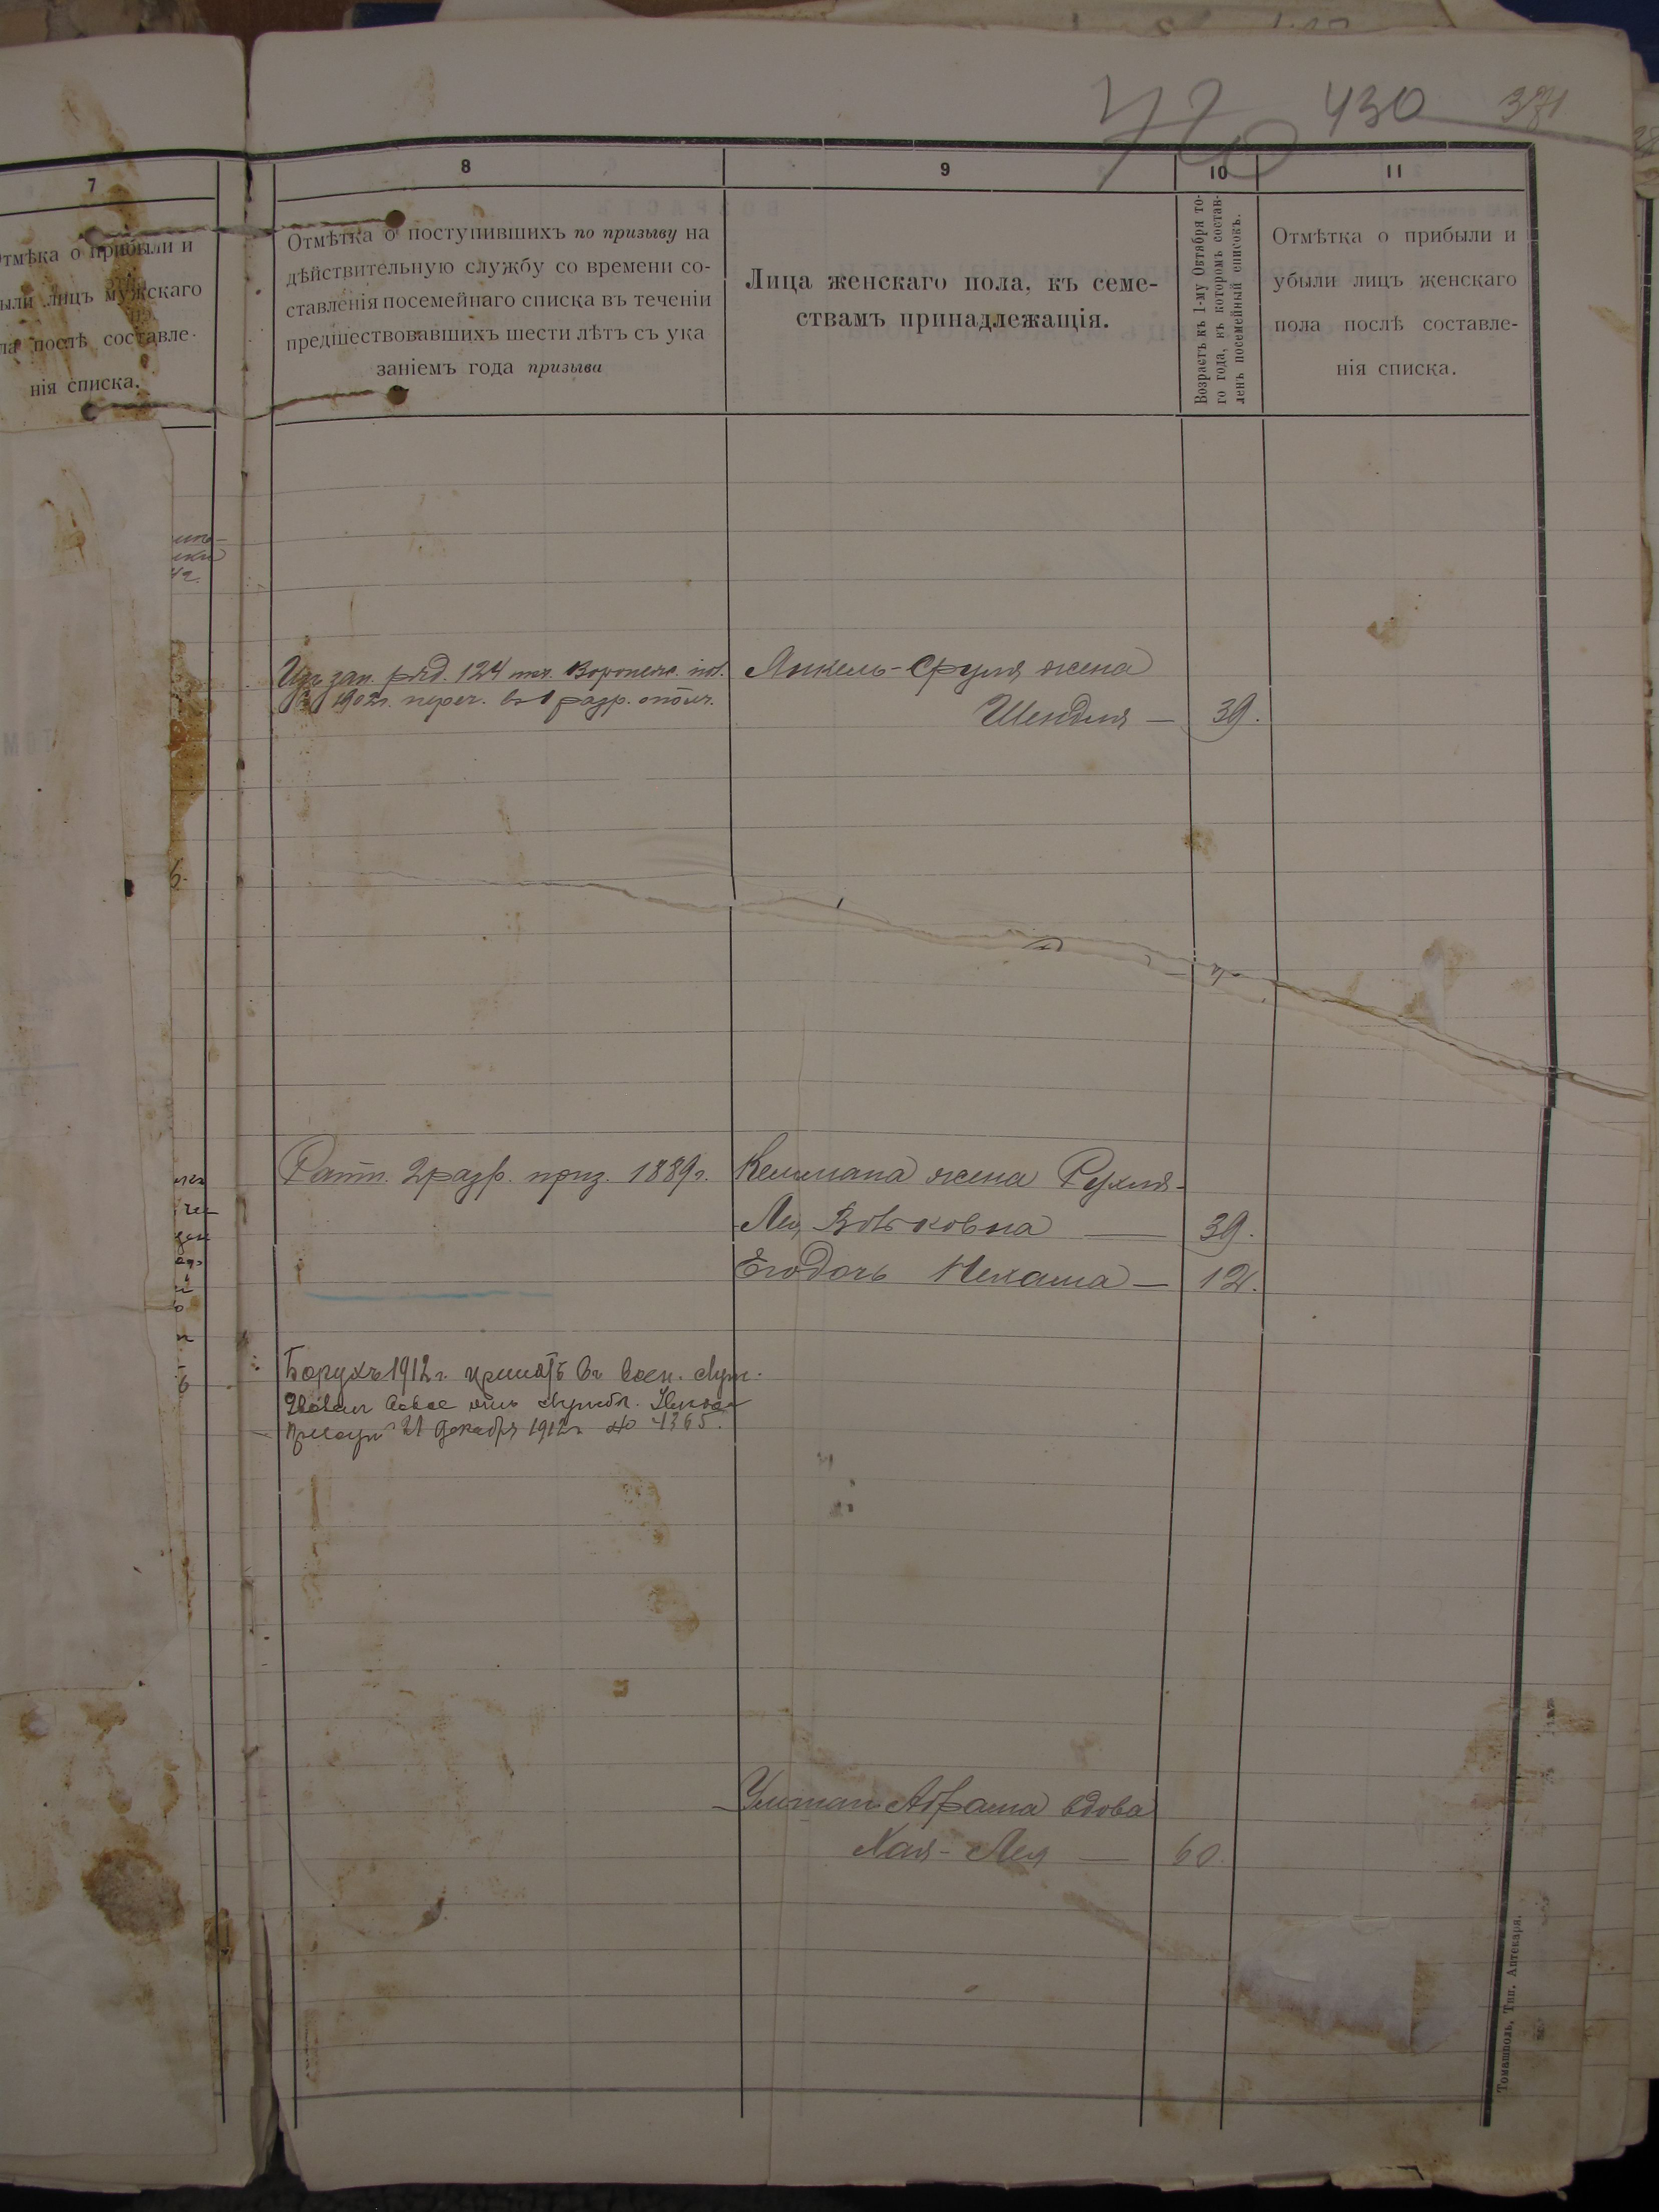 430 371
7
8
9
10
11
Отмѣтка о прибыли и
были лицъ мужскаго
ла послѣ составле-
нія списка.
Отмѣтка о поступившихъ по призыву на
дѣйствительную службу со времени со-
ставленія посемейнаго списка въ теченіи
предшествовавшихъ шести лѣтъ съ ука
заніемъ года призыва
Лица женскаго пола, къ семе-
ствамъ принадлежащія.
Возрастъ къ 1-му Октября то-
го года, въ которомъ состав-
ленъ посемейный списокъ.
Отмѣтка о прибыли и
убыли лицъ женскаго
пола послѣ составле-
нія списка.
Изъ зап. ряд. 124 пех. Воронеж. пол.
1902г. переч. въ 1 разр. ополч.
Янкель-Сруля жена
Шендля — 39.
Ратн. 2 разр. приз. 1889г.
Кельмана жена Рухля-
Лея Вольковна — 39.
Его дочь Нехама — 12.
Борухъ 1912г. принятъ въ воен. служ.
21 Декабря 1912г. № 4365.
Абрама вдова
Хая-Лея — 60.
Томашполь, Тип. Аптекаря.